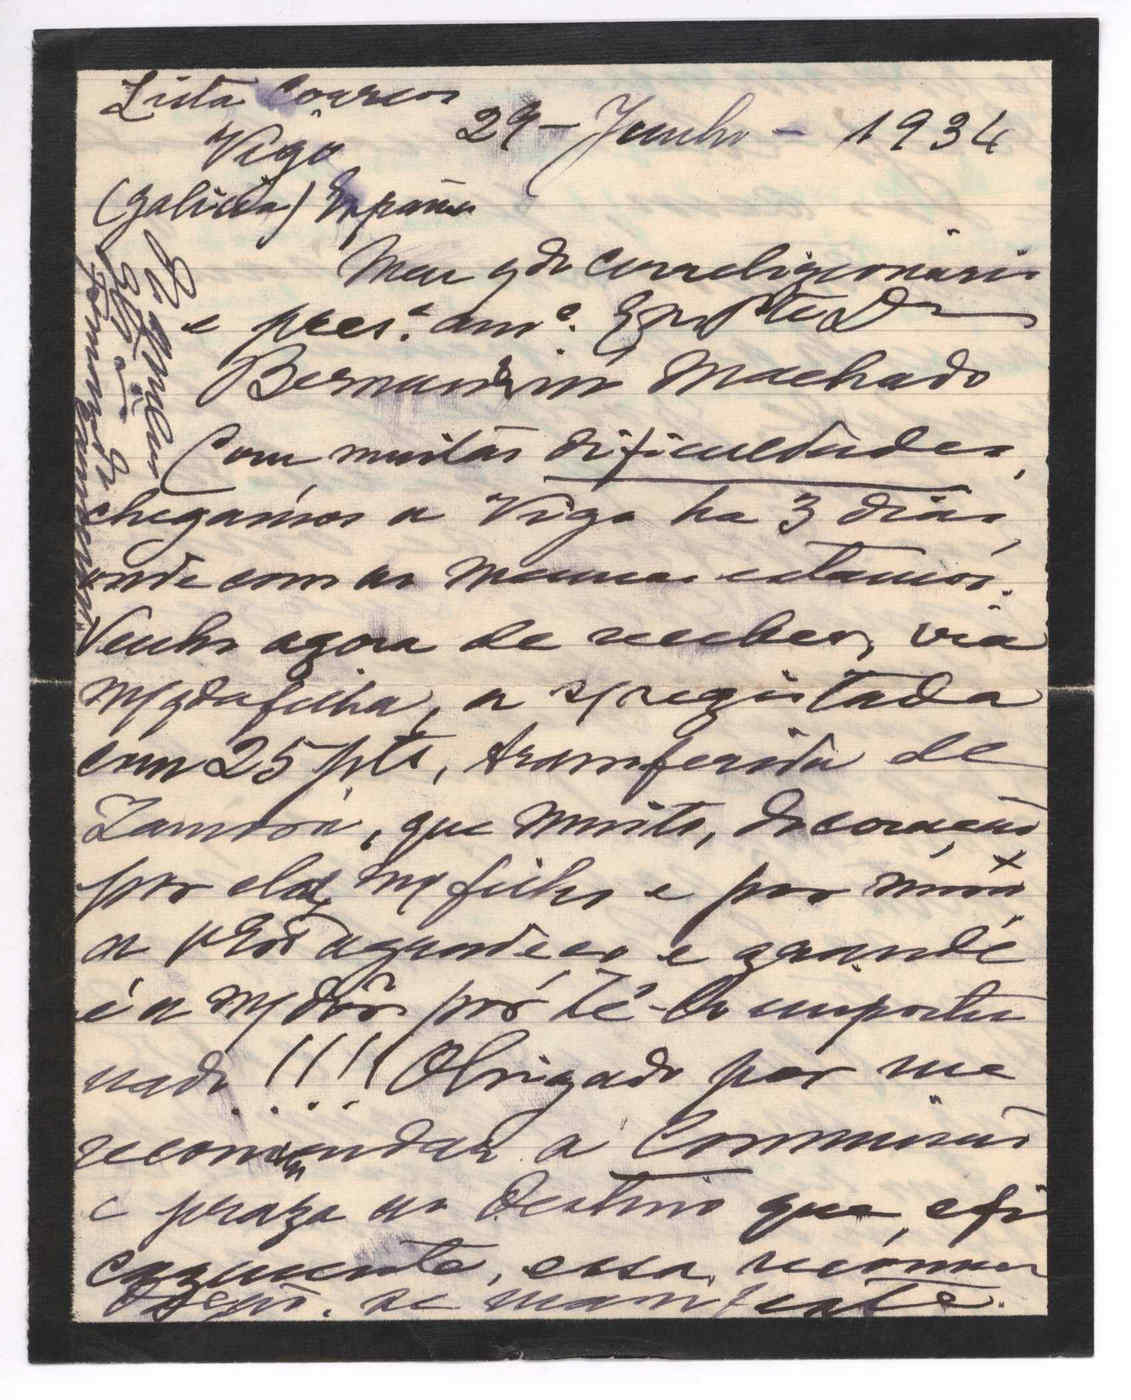 Lista Correos
29 - Junho - 1934
Vigo
(Galicia) España
Meu qdo correligionario
e pres.º am.º Exmo Dr
Bernardino Machado
Com muitas dificuldades,
chegamos a Vigo ha 3 dias,
onde com as estamos.
Venho agora de receber, via
m/qda filha, a s/registada
com 25 pts, transferida de
Zamora, que muito, do coração
por ela, m/ filho e por mim
a agradeço e grande
é a m/ dôr por tê-lo importu
nado !!!! Obrigado por me
recomendar á Commissão
e praza ao Destino que, efi
cazmente, essa recomen
dação se manifeste.